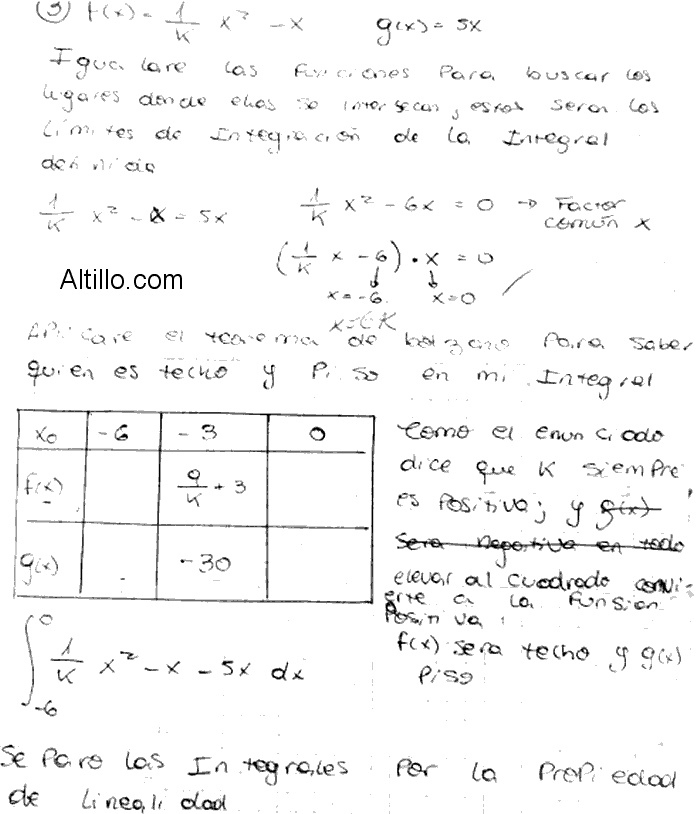 ③ f(x) = 1/K x² - x g(x) = 5x
Igualare las funciones para buscar los
lugares donde ellas se intersecan, estos seran los
límites de Integración de la Integral
definida
1/K x² - x = 5x 1/K x² - 6x = 0 → Factor
común x
(1/K x - 6) · x = 0
x = -6 x = 0
x = 6K
Altillo.com
Aplicare el teorema de bolzano para saber
quien es techo y Piso en mi Integral
x₀ -6 -3 0
f(x) 9/K + 3
g(x) -30
como el enunciado
dice que K siempre
es Positiva; y g(x)
sera negativa en todo
elevar al cuadrado convi-
erte a la funsion
Positiva
f(x) sera techo y g(x)
Piso
∫ 0 -6 1/K x² - x - 5x dx
Separo las Integrales por la Propiedad
de linealidad